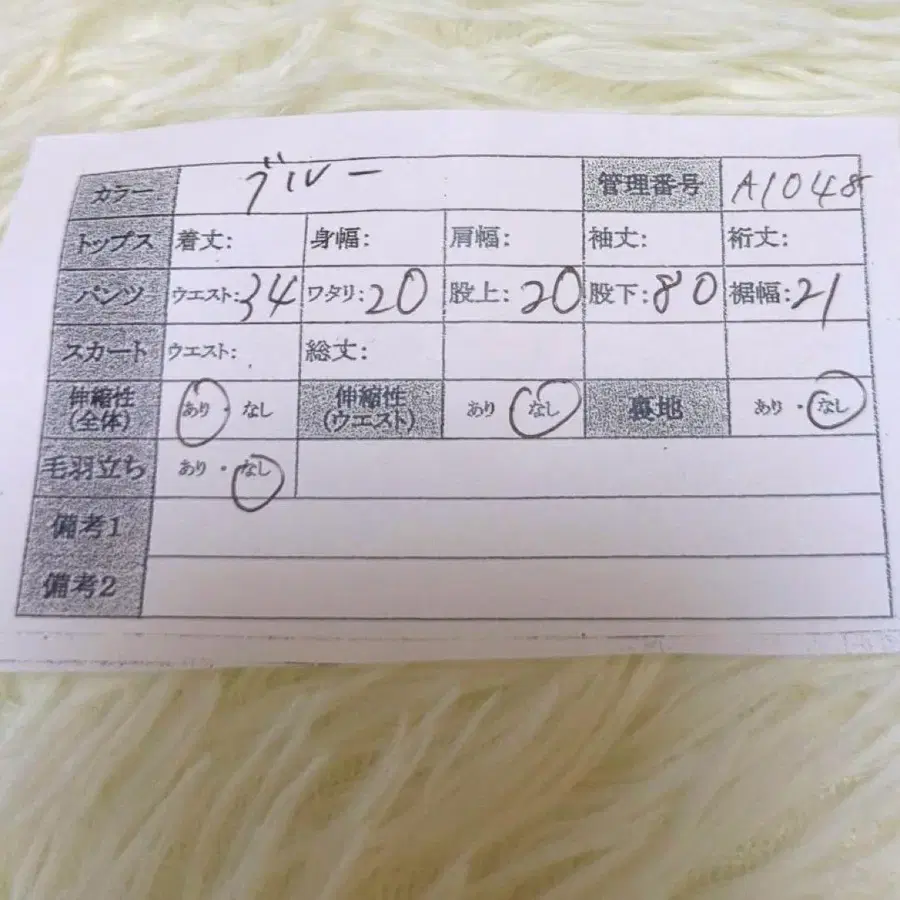 カラー ブルー 管理番号 A1048
トップス 着丈: 身幅: 肩幅: 袖丈: 裄丈:
パンツ ウエスト:34 ワタリ:20 股上:20 股下:80 裾幅:21
スカート ウエスト: 総丈:
伸縮性(全体) あり・なし 伸縮性(ウエスト) あり なし 裏地 あり・なし
毛羽立ち あり・なし
備考1
備考2